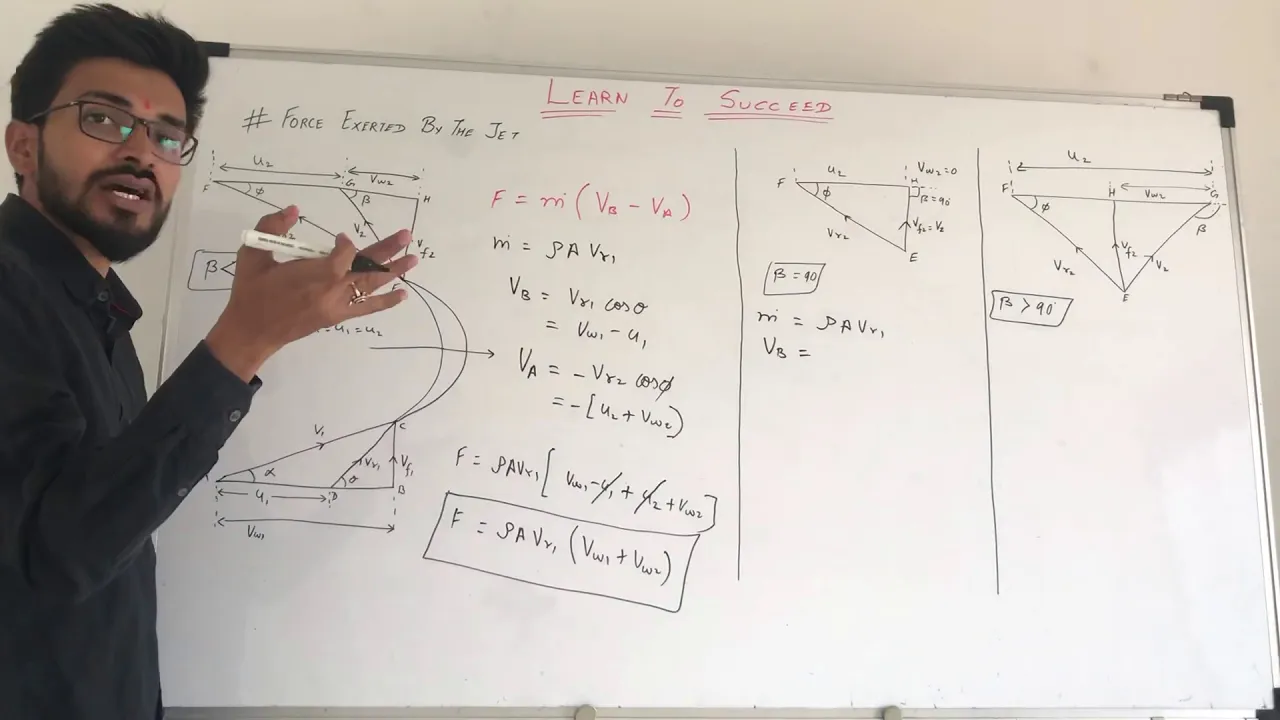 LEARN TO SUCCEED
# FORCE EXERTED BY THE JET
u2
Vw2
F
φ
G
β
H
V2
Vf2
β<
= u1 = u2
V1
C
α
Vr1
Vf1
θ
u1
D
B
Vw1
F = ṁ ( VB − VA )
ṁ = ρ A Vr1
VB = Vr1 cosθ
= Vw1 − u1
VA = − Vr2 cosφ
= −[ u2 + Vw2 )
F = ρ A Vr1 [ Vw1 − u1 + u2 + Vw2 ]
F = ρ A Vr1 ( Vw1 + Vw2 )
u2
Vw2 = 0
F
φ
H
β = 90°
Vr2
Vf2 = V2
E
β = 90
ṁ = ρ A Vr1
VB =
u2
F
φ
H
Vw2
G
β
Vr2
Vf2
V2
E
β > 90°